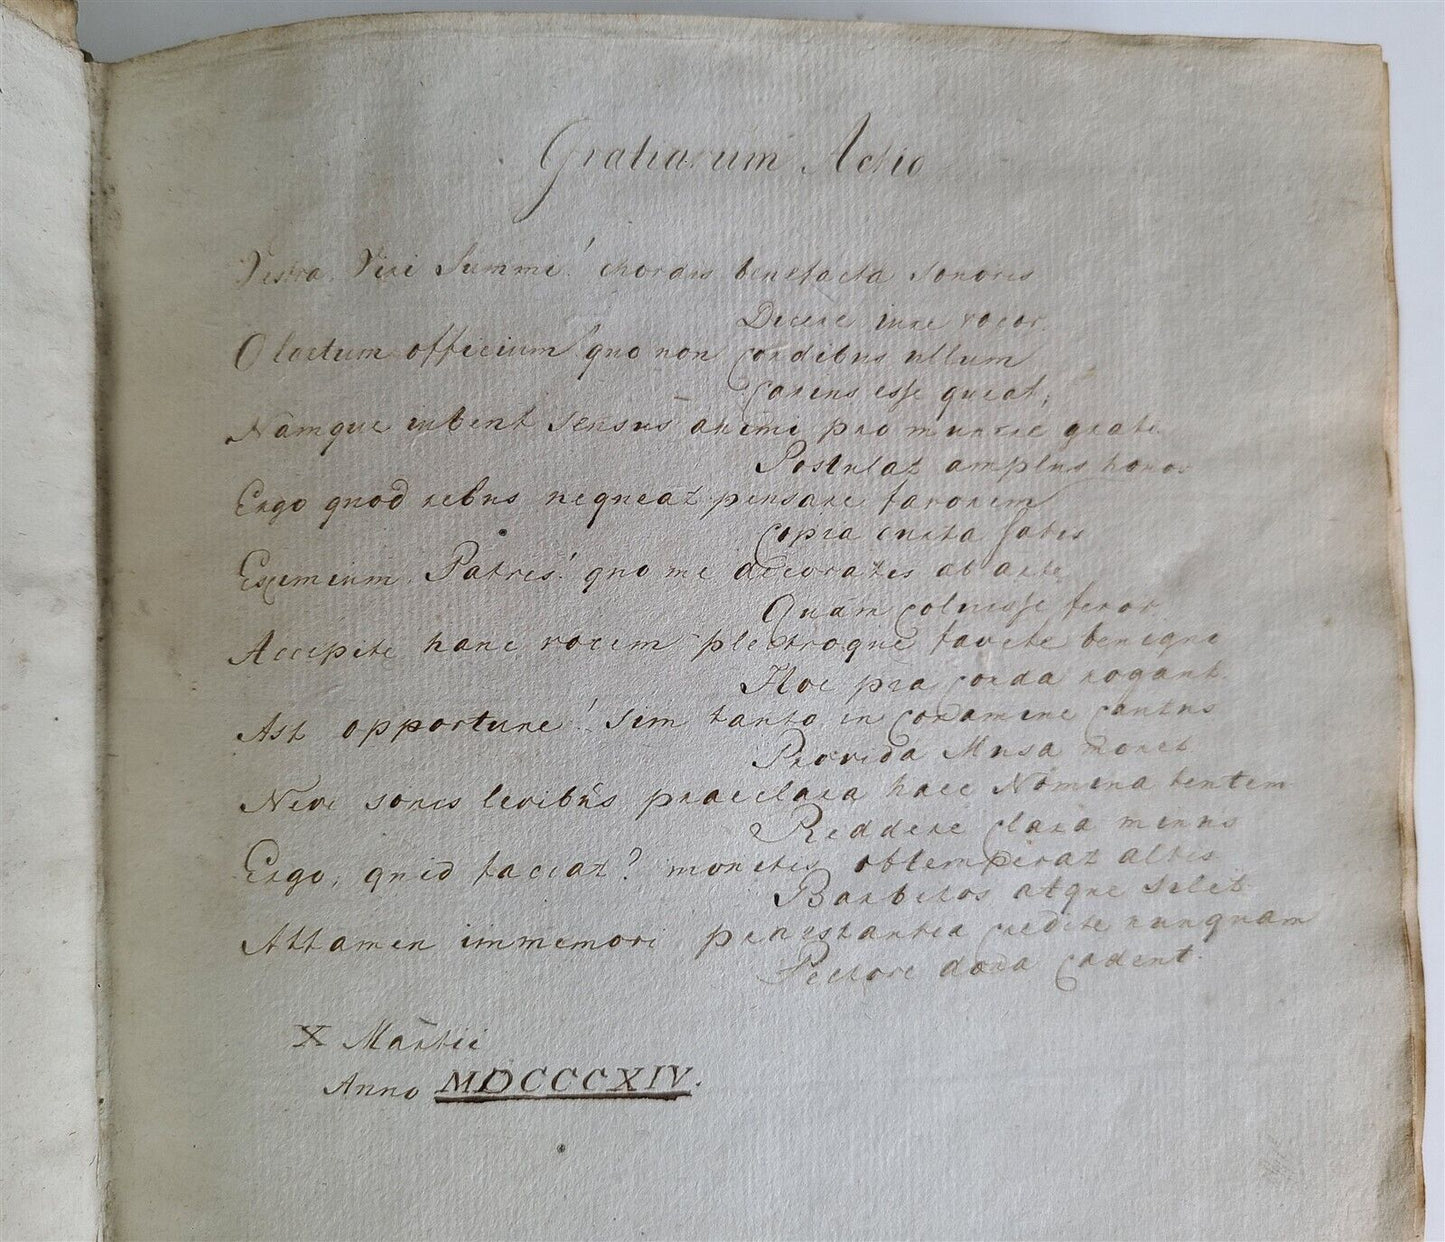 Gratiarum Actio
Vestra Viri Summi! chordis benefacta sonoris
Dicere iure vocor.
O laetum officium! quo non cordibus ullum
Carius esse queat;
Namque iubent sensus animi pro munere grati
Postulat amplus honor
Ergo quod rebus nequeat pensare favorem
Copia cuncta satis
Eximium Patres! quo me decoratis ab arte
Quam coluisse feror
Accipite hanc vocem plectroque favete benigne
Hoc pia corda rogant.
Ast opportune! sim tanto in conamine cautus
Provida Musa monet.
Neve sonis levibus praeclara haec Nomina tentem
Reddere clara minus
Ergo, quid faciat? monitis obtemperat altis
Barbitos atque silet
Attamen immemori praestantia credite nunquam
Pectore dona cadent.
X Martii
Anno MDCCCXIV.